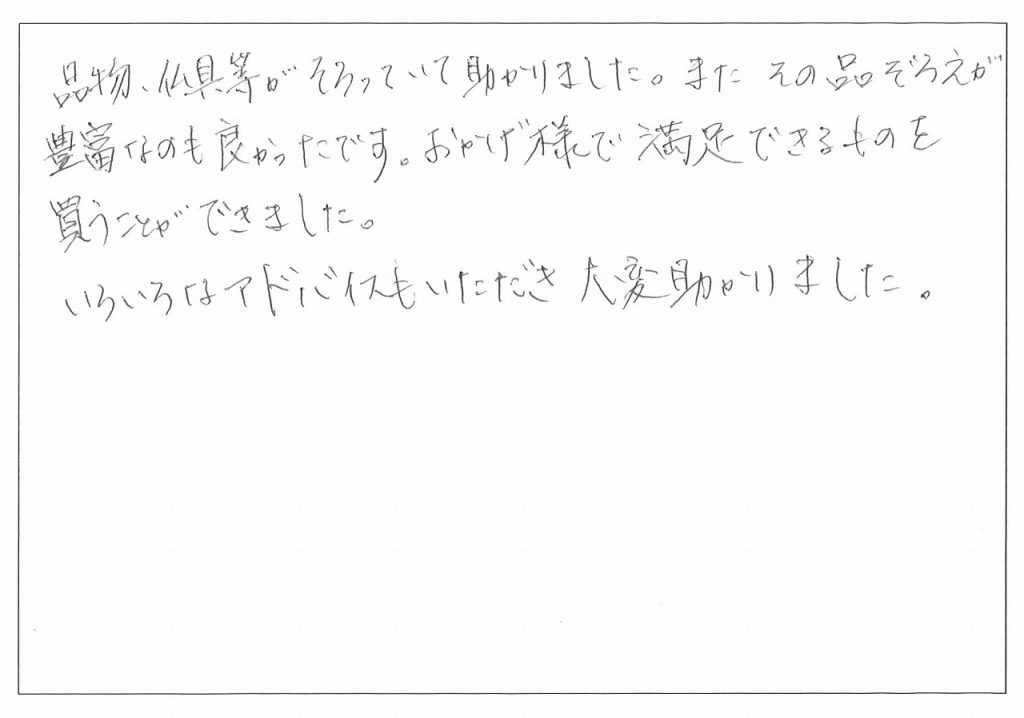 品物、仏具等がそろっていて助かりました。また その品ぞろえが
豊富なのも良かったです。おかげ様で満足できるものを
買うことができました。
いろいろなアドバイスもいただき大変助かりました。